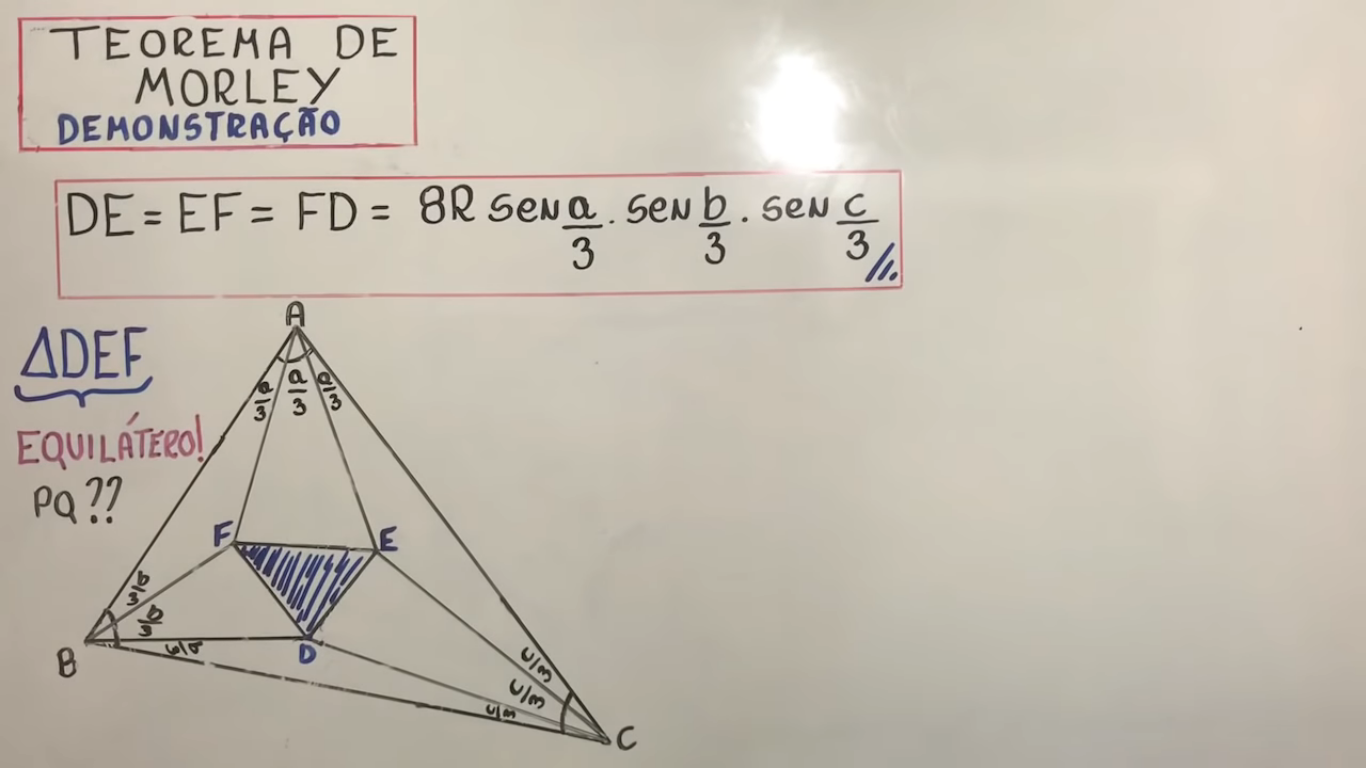 TEOREMA DE
MORLEY
DEMONSTRAÇÃO
DE = EF = FD = 8R SEN a/3 . SEN b/3 . SEN c/3 //.
ΔDEF
EQUILÁTERO!
PQ??
A
a/3 a/3 a/3
F E
b/3
b/3
B
b/3
D
c/3
c/3
c/3
C